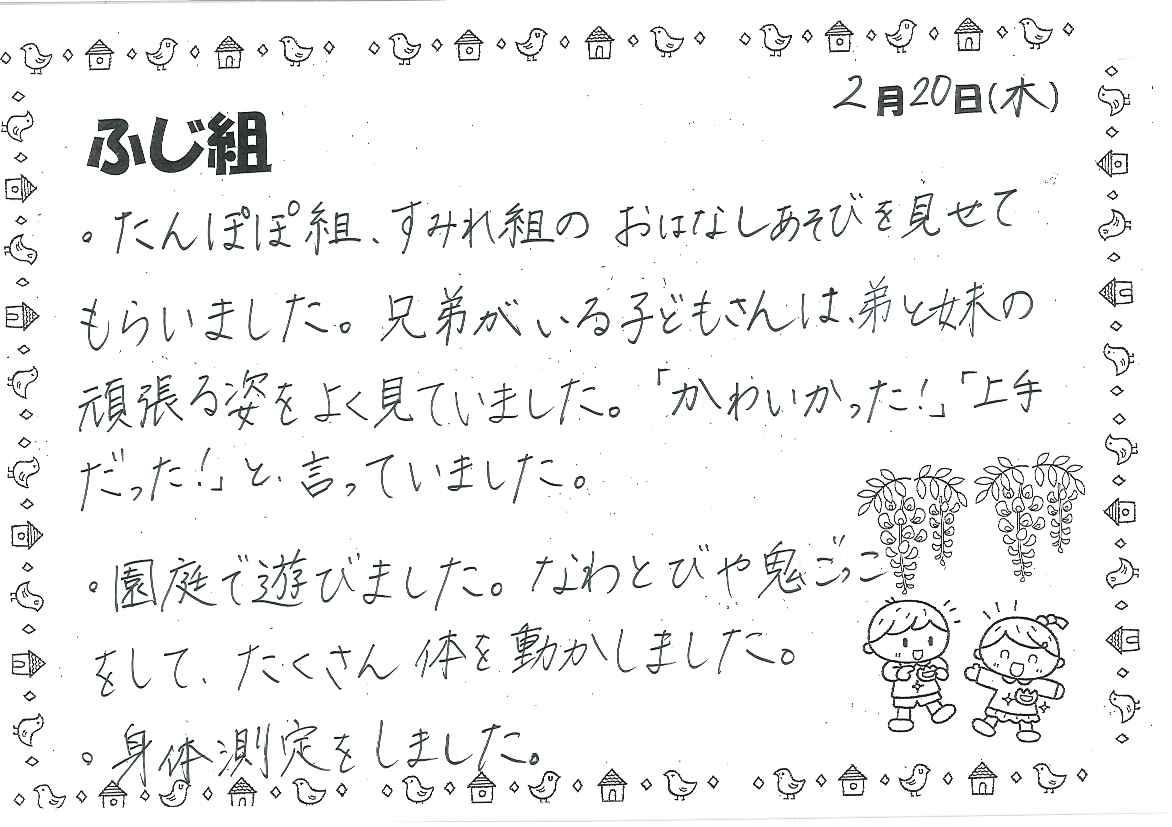 2月20日(木)
ふじ組
。たんぽぽ組、すみれ組の おはなしあそびを見せて
もらいました。兄弟がいる子どもさんは、弟と妹の
頑張る姿をよく見ていました。「かわいかった!」「上手
だった!」と、言っていました。
・園庭で遊びました。なわとびや鬼ごっこ
をして、たくさん体を動かしました。
。身体測定をしました。